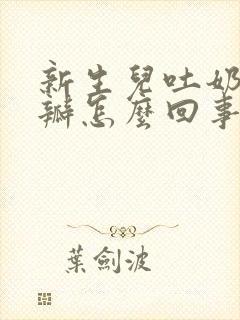 新生兒吐奶
瓣怎麼回事
葉劍波